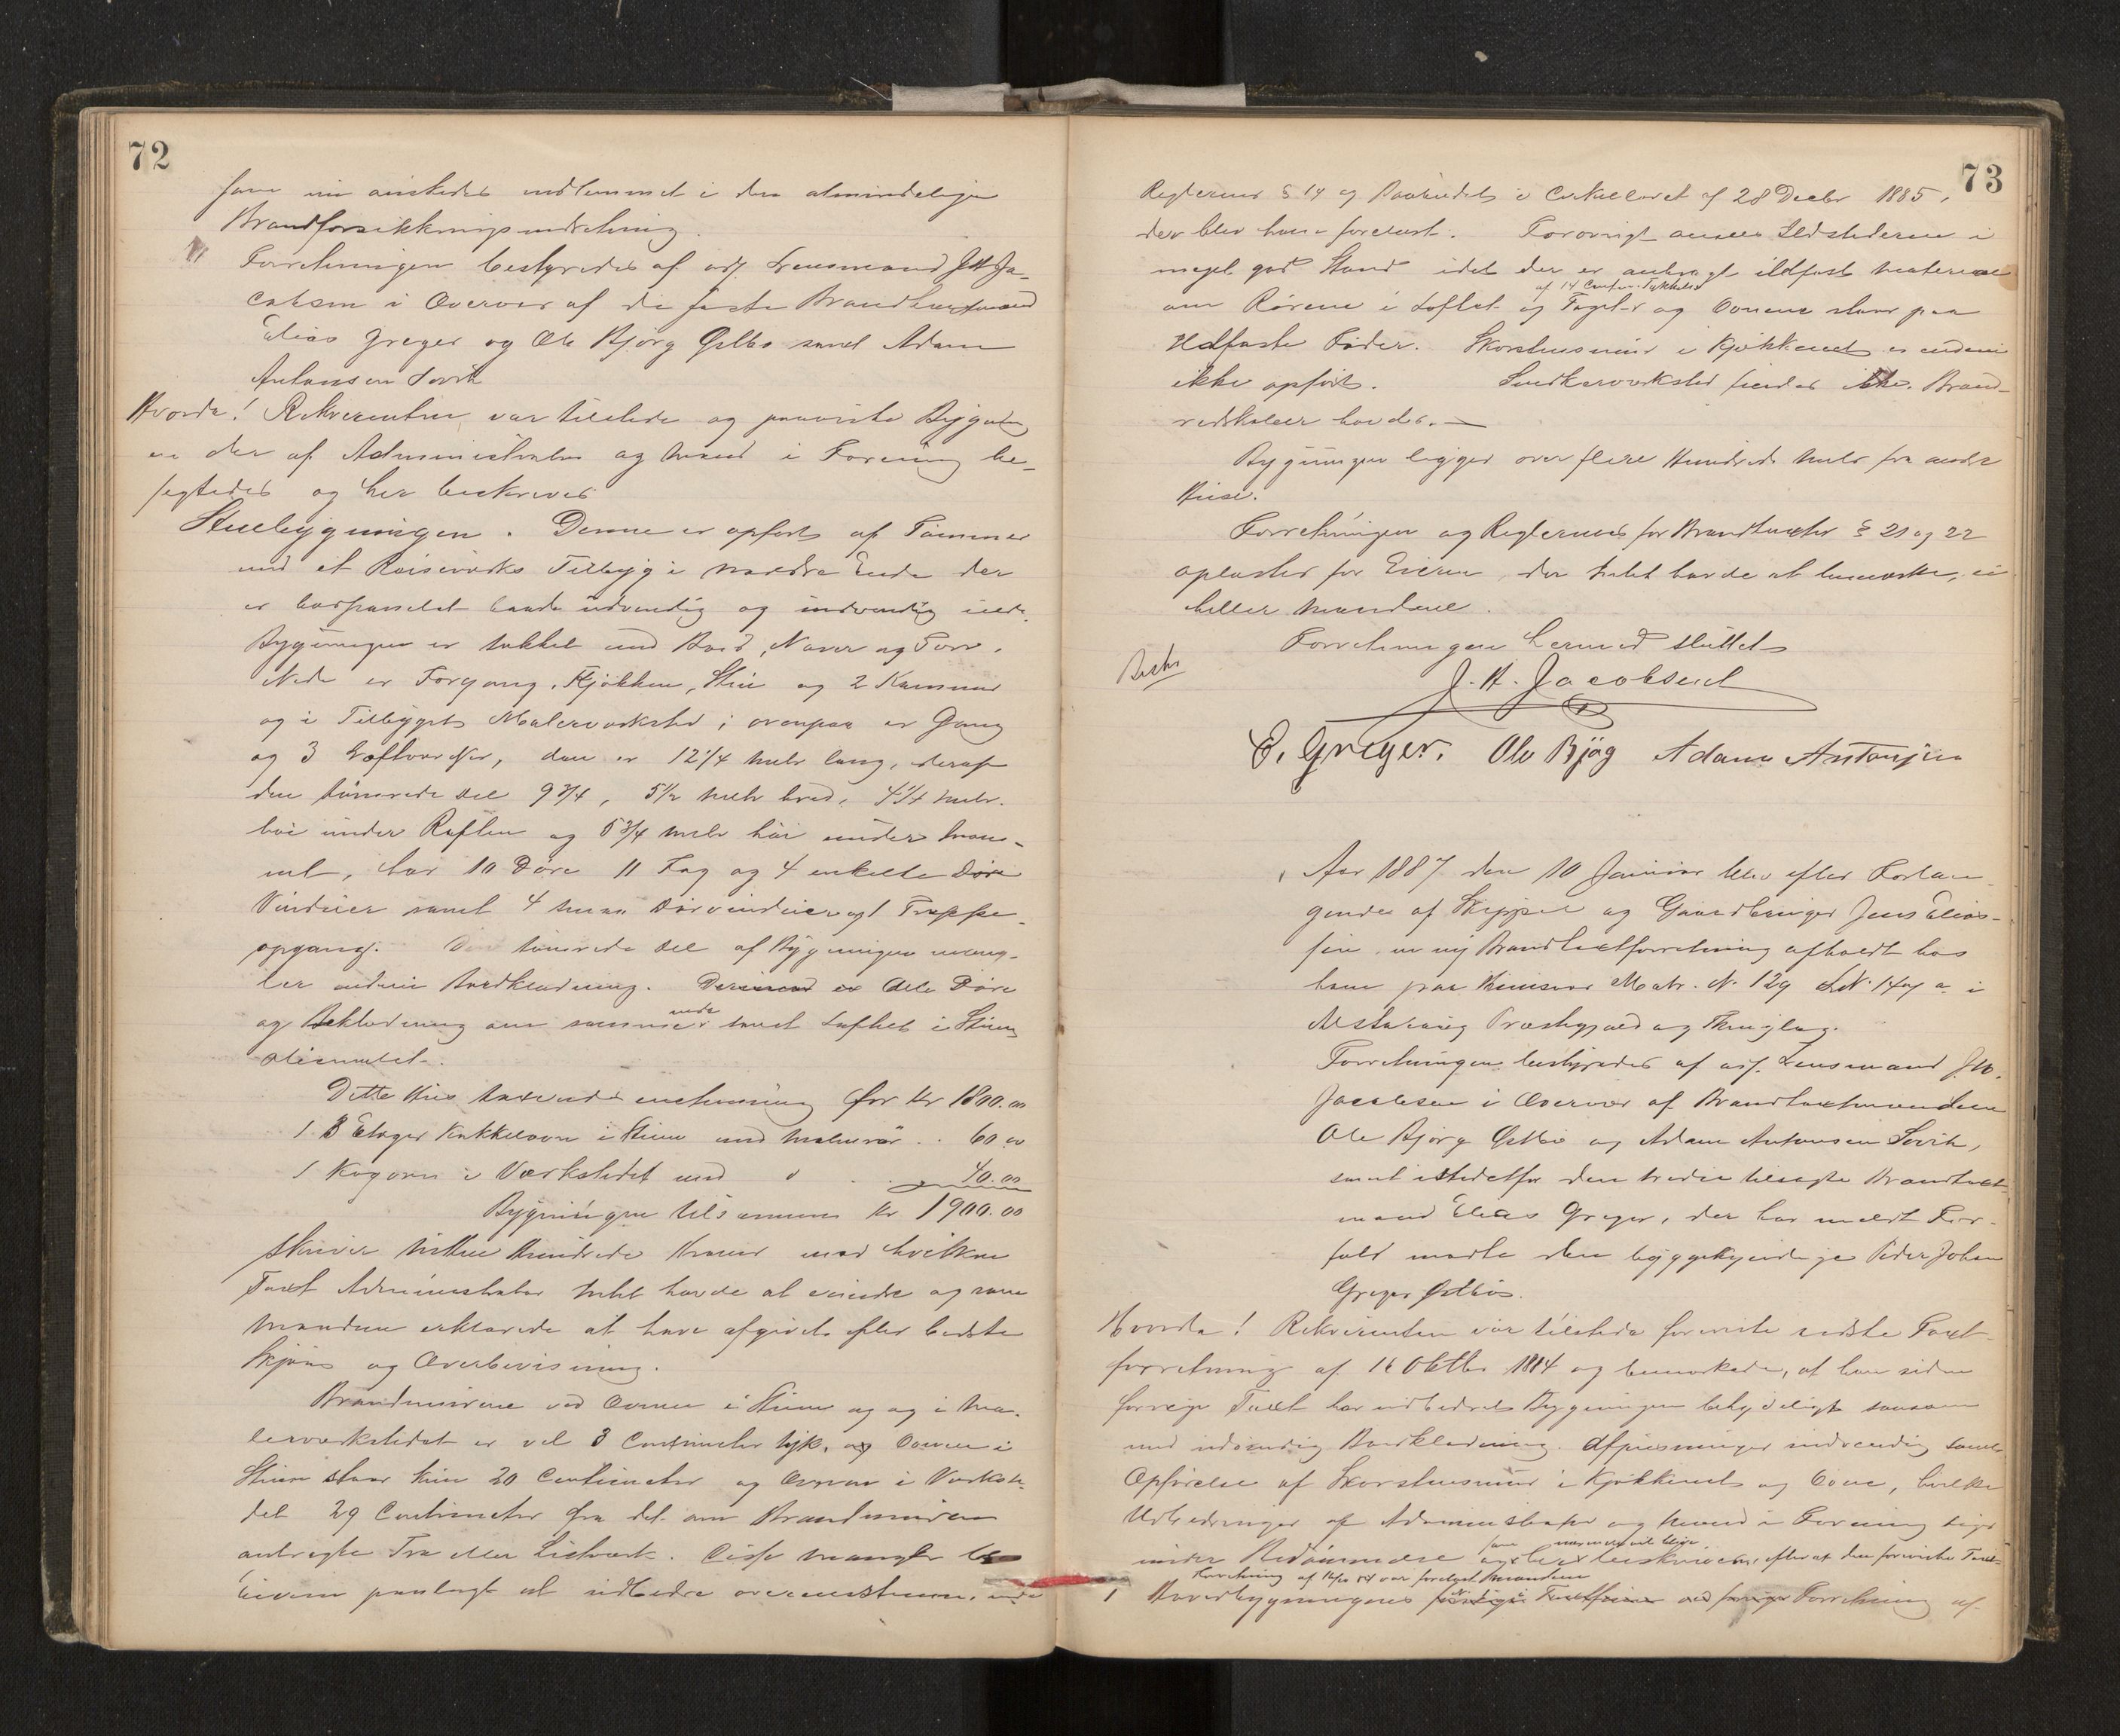 72
som nu ønskedes indlemmet i den almindelige
Brandforsikringsindretning.
Forretningen bestyredes af adj. Lensmand J. H. Ja-
cobsen i Overvær af de faste Brandtaxtmænd
Elias Greger og Ole Bjørg Østbø samt Adam
Antonsen Sørvik
Hvorda! Rekvirenten var tilstede og paaviste Bygnin
en der af Administrator og Mænd i Forening be-
sigtedes og her beskrives
Stuebygningen. Denne er opført af Tømmer
med et Reisverks Tilbyg i nordre Ende der
er bordpanelet baade udvendig og indvendig nede.
Bygningen er tækket med Bord, Næver og Torv.
Nede er Forgang, Kjøkken, Stue og 2 Kammer
og i Tilbyget Malerværksted; ovenpaa er Gang
og 3 Loftværelser, den er 12 1/4 Meter lang, deraf
den tømrede Del 9 3/4, 5 1/2 Meter bred, 4 1/4 Meter
høi under Raften og 5 3/4 Meter høi under Møn-
net, har 10 Døre 11 Fag og 4 enkelte Døre
Vinduer samt 4 smaa Dørvinduer og 1 Trappe-
opgang. Den tømrede Del af Bygningen mang-
ler endnu Bordklædning. Derimod er Alle Døre
og Beklædning om samme nede samt Loftet i Stuen
Dette Hus taxeredes enstemmig for Kr 1800.00
1. 3 Etages Kakkelovn i Stuen med Malmrør . . 60.00
1 Kogovn i Værkstedet med do . . 40.00
Bygningen tilsammen Kr 1900.00
skriver nitten Hundrede Kroner mod hvilken
Taxt Administrator Intet havde at erindre og som
Mændene erklærede at have afgivet efter bedste
Skjøn og Overbevisning.
Brandmurene ved Ovnen i Stuen og og i Ma-
lerværkstedet er vel 8 Centimeter tyk, og Ovnen i
Stuen staar kun 20 Centimeter og Ovnen i Værkste-
det 29 Centimeter fra det om Brandmuren
anbragte Træ eller Listværk. Disse Mangler blev
Eieren paalagt at udbedre overensstemm. med
73
Reglernes § 14 og Paabudet i Cirkulæret af 28 Decbr 1885,
der blev ham forelæst. Forøvrigt ansees Ildstederne i
meget god Stand idet der er anbragt ildfast Materiale
af 14 Centim. Tykkelse
om Rørene i Loftet og Taget og Ovnene staar paa
Ildfaste Fødder. Skorstensmur i Kjøkkenet er endnu
ikke opført. Snedkerværksted findes ikke. Brand-
redskaber havdes. —
Bygningen ligger over flere Hundrede Meter fra andre
Huse.
Forretningen og Reglernes for Brandtaxter § 21 og 22
oplæstes for Eieren, der Intet havde at bemærke, ei
heller Mændene.
Forretningen hermed sluttet
J. H. Jacobsen
E. Greger. Ole Bjøg Adam Antonsen
Aar 1887 den 10 Januar blev efter Forlan-
gende af Skipper og Gaardbruger Jens Elias-
sen en ny Brandtaxtforretning afholdt hos
ham paa Matr. N. 129 LN. 147 a i
Alstahaug Præstegjæld og Thinglag.
Forretningen bestyredes af adj. Lensmand J. H.
Jacobsen i Overvær af Brandtaxtmændene
Ole Bjørg Østbø og Adam Antonsen Sørvik,
samt istedetfor den tredie tilsagte Brandtaxt
mand Elias Greger, der har meldt For-
fald mødte den byggekyndige Peder Johan
Greger Østbø.
Hvorda! Rekvirenten var tilstede foreviste sidste Taxt-
forretning af 16 Oktbr 1884 og bemærkede, at han siden
forrige Taxt har udbedret Bygningen betydeligt saasom
med udvendig Bordklædning. Afpudsninger indvendig samt
Opførelse af Skorstensmur i Kjøkkenet og Ovne, hvilke
Udbedringer af Administrator og Mænd i Forening toges
under Bedømmelse og her beskrives, efterat den foreviste Taxt-
forretning af 16/10 84 var forelæst Mændene
1 Hovedbygningens Forretning af